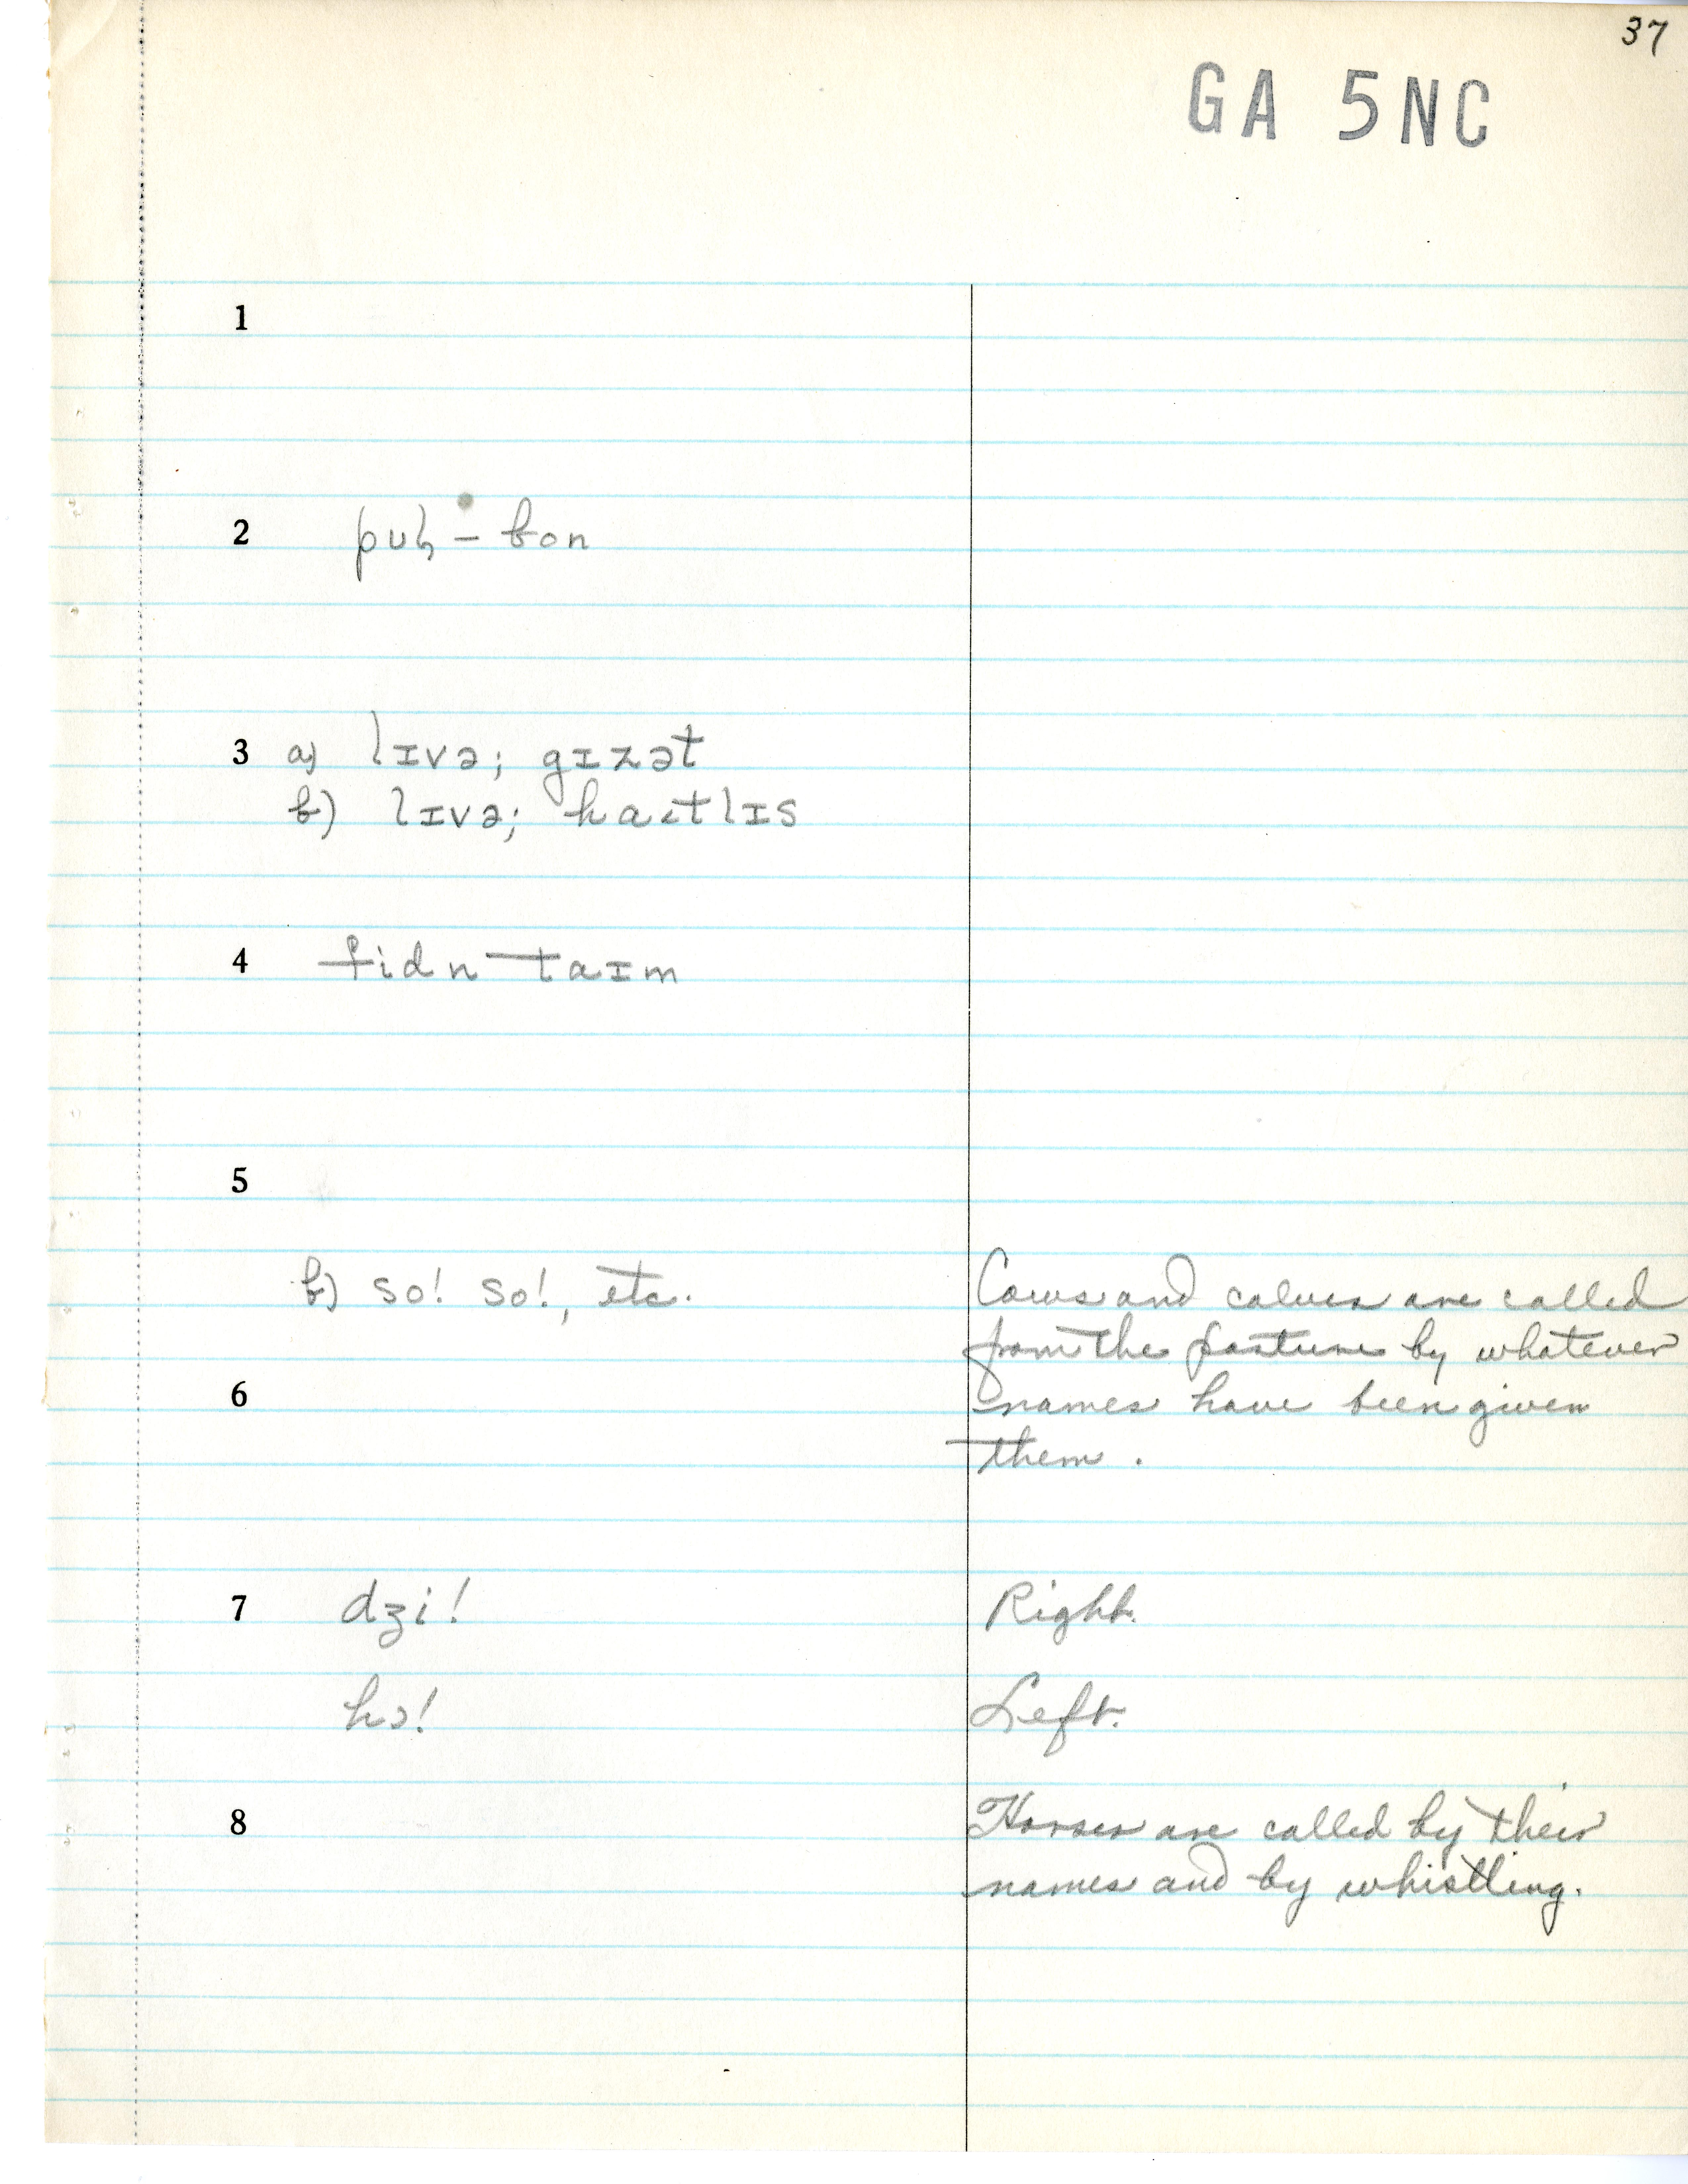 37
GA 5NC
1
2 puɮ-bon
3 a) lɪvə; gɪzət
b) lɪvə; haɪtlɪs
4 fidn taɪm
5
b) so! so!, etc. Cows and calves are called
from the pasture by whatever
6 names have been given
them.
7 dʒi! Right.
hɔ! Left.
8 Horses are called by their
names and by whistling.